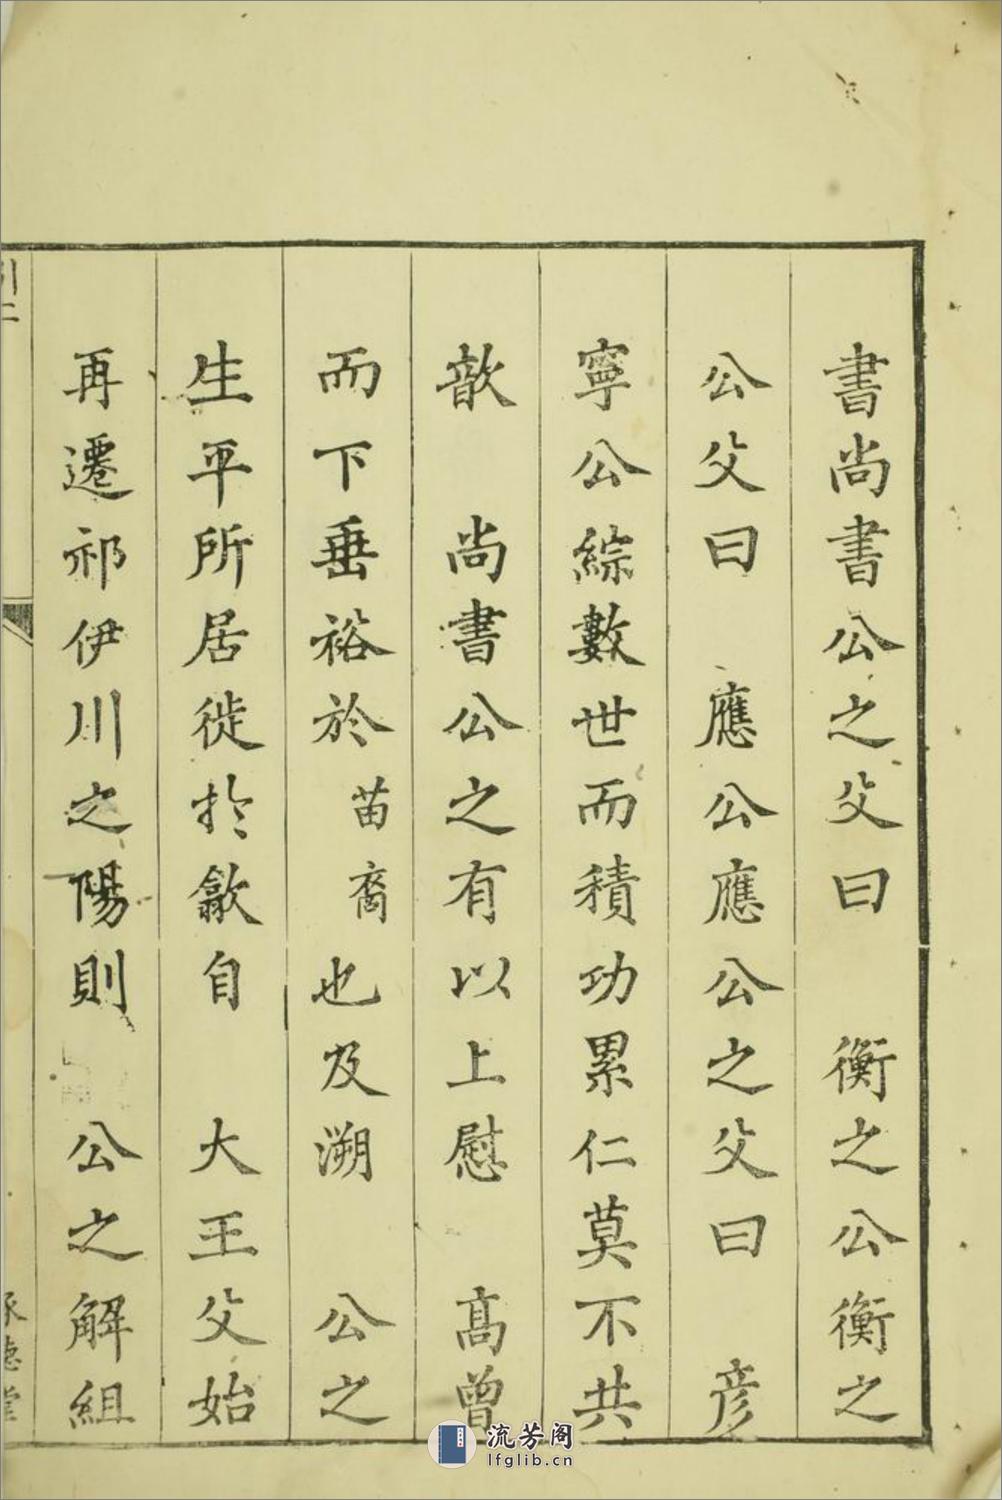 書尚書公之父曰　衡之公衡之
公父曰　應公應公之父曰　彦
寧公綜數世而積功累仁莫不共
歆　尚書公之有以上慰　髙曾
而下垂裕於苗裔也及溯　公之
生平所居徙於歙自　大王父始
再遷祁伊川之陽則　公之解組
引二
承德堂
流芳阁
lfglib.cn